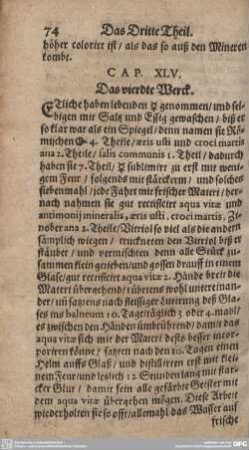 74 Das Dritte Theil.
höher colorirt ist / als das so auß den Mineren
kombt.
CAP. XLV.
Das vierdte Werck.
Etliche haben lebenden ☿ genommen / und sel-
bigen mit Saltz und Essig gewaschen / biß er
so klar war als ein Spiegel / denn namen sie Rö-
mischen 4. Theile / æris usti und croci martis
ana 2. Theile / salis communis 1. Theil / dadurch
haben sie 7. Theil / ☿ sublimirt zu erst mit weni-
gem Feur / folgends mit stärckerm / und solches
siebenmahl / jede Fahrt mit frischer Materi / her-
nach nahmen sie gut rectificirt aqua vitæ und
antimonij mineralis, æris usti, croci martis, Zi-
nober ana 2. Theile / Vitriol so viel als die andern
sämptlich wiegen / truckneten den Vitriol biß er
stäubet / und vermischten denn alle Stück zu-
sammen klein gerieben / und gossen drauff in einem
Glase / gut rectificirt aqua vitæ 2. Hände breit die
Materi übergehend / rührtens wohl untereinan-
der / uñ satztens nach fleissiger Lutirung deß Gla-
ses ins balneum 10. Tage / täglich 3 oder 4. mahl /
es zwischen den Händen umbrührend / damit das
aqua vitæ sich mit der Materi desto besser incor-
poriren könne / satzten nach den 10. Tagen einen
Helm auffs Glaß / und distillirten erst mit klei-
nem Feur / und letzlich 12 Stunden lang mit star-
cker Glut / damit sein alle gefärbte Geister mit
dem aqua vitæ übergehen mögen. Diese Arbeit
wiederholten sie so offt / allemahl das Wasser auf
frische